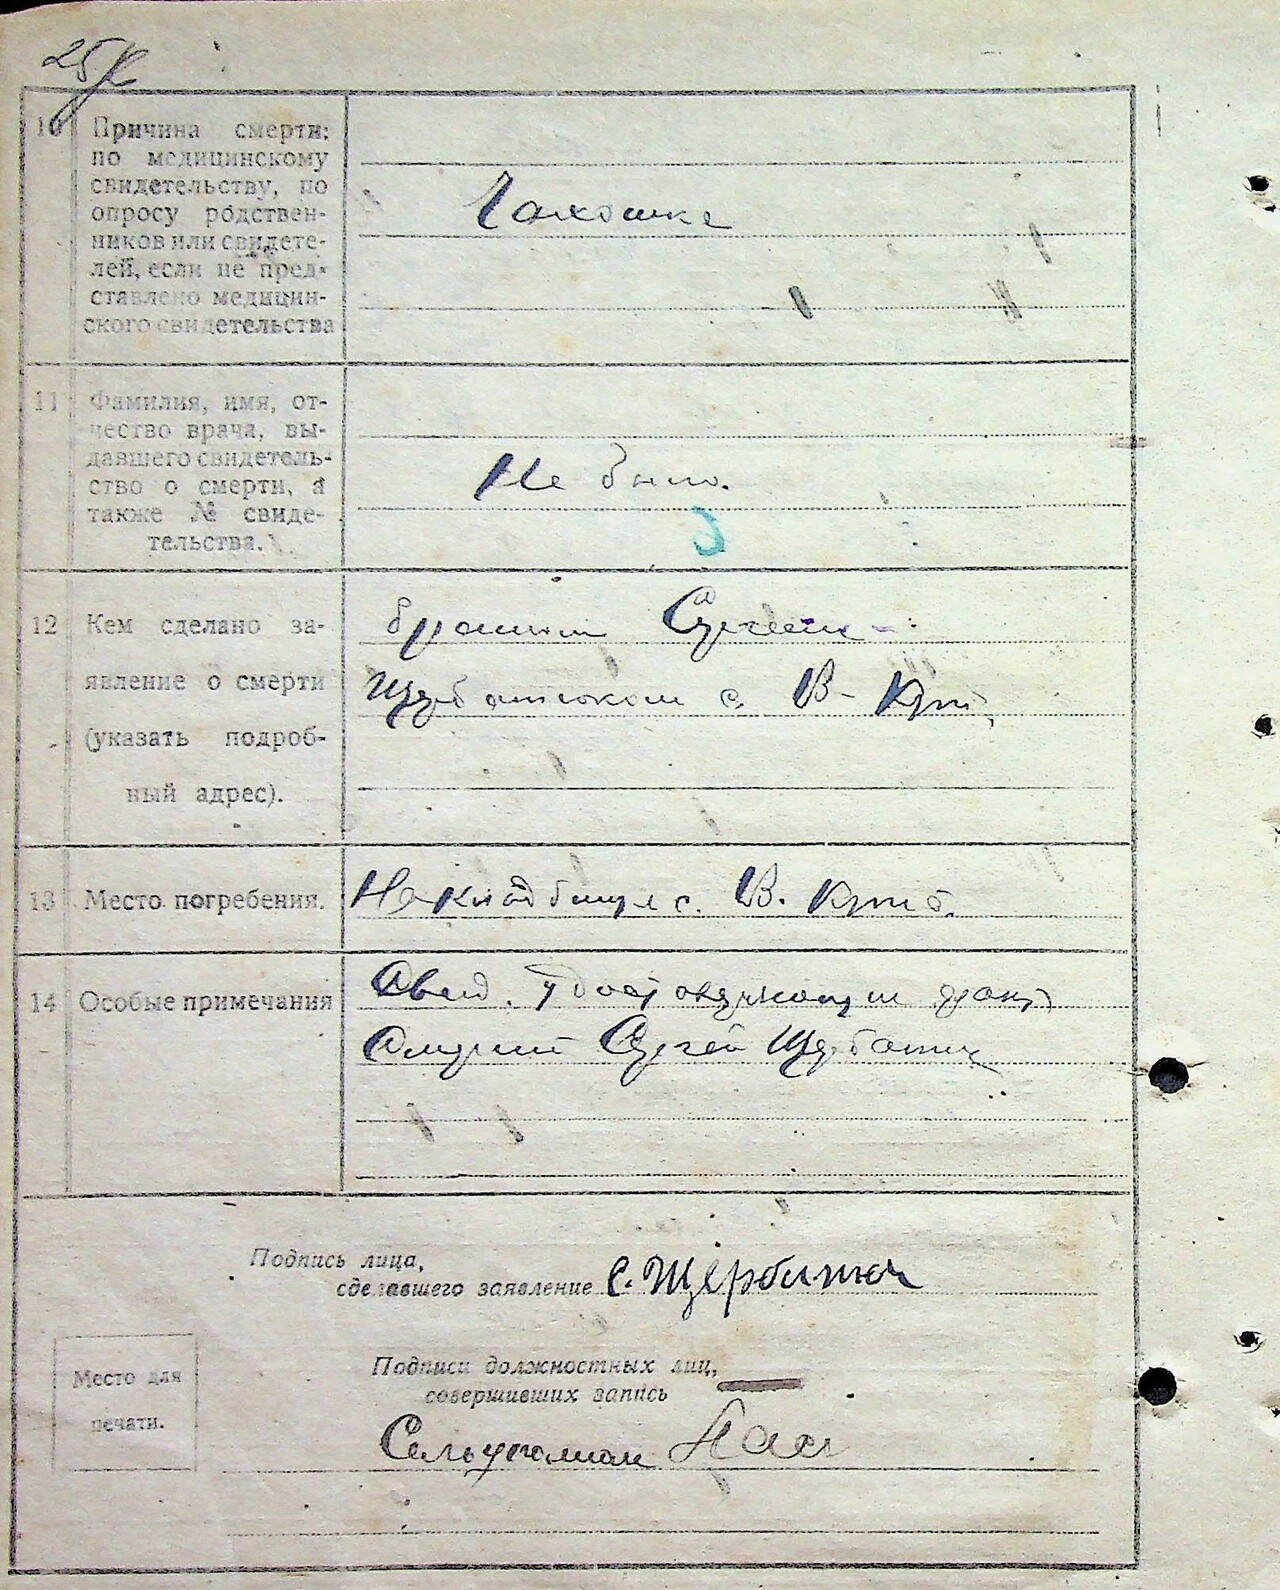 10 Причина смерти:
по медицинскому
свидетельству, по
опросу родствен-
ников или свидете-
лей, если не пред-
ставлено медицин-
ского свидетельства
Чахотка
11 Фамилия, имя, от-
чество врача, вы-
давшего свидетель-
ство о смерти, а
также № свиде-
тельства.
Не было.
12 Кем сделано за-
явление о смерти
(указать подроб-
ный адрес).
братом Сергеем
Щербатюком с. В-
13 Место погребения.
На кладбище с. В.
14 Особые примечания
Сергей
Подпись лица,
сделавшего заявление С. Щербатюк
Подписи должностных лиц,
совершивших запись
Место для
печати.